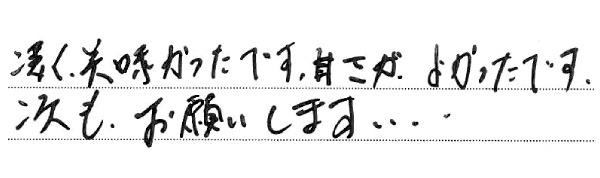 凄く、美味かったです。甘さが、よかったです。
次も、お願いします・・・・